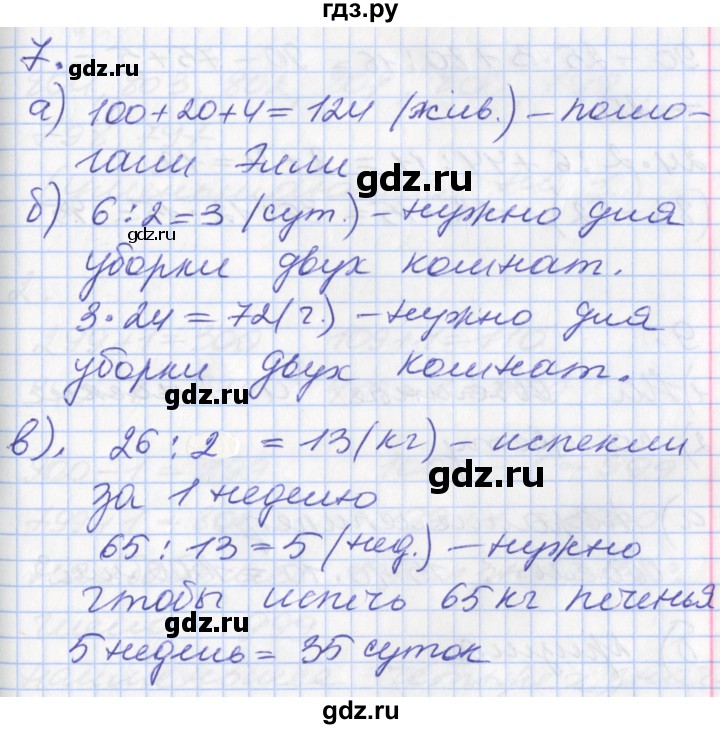 гдз.ру
7.
gdz.ru
а) 100+20+4=124 (жив.) – помо-
гали Элли
gdz.ru
б) 6:2=3 (сут.) – нужно для
gdz.ru
уборки двух комнат.
3·24=72(г.) – нужно для
уборки двух комнат.
gdz.ru
в). 26:2 = 13(кг) – испекли
gdz.ru
за 1 неделю
65:13=5 (нед.) – нужно
чтобы испечь 65кг печенья
gdz.ru
5 недель = 35 суток
gdz.ru
gdz.ru